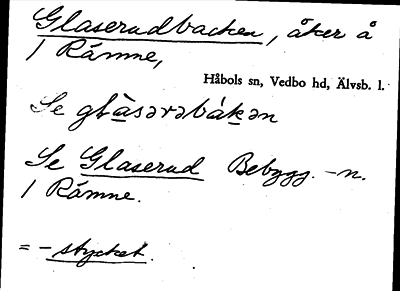 Glaserudbacken, åker å
1 Rämne,
Håbols sn, Vedbo hd, Älvsb. l.
Se glàsərəbákən
Se Glaserud Bebygg.-n.
1 Rämne.
= -stycket.